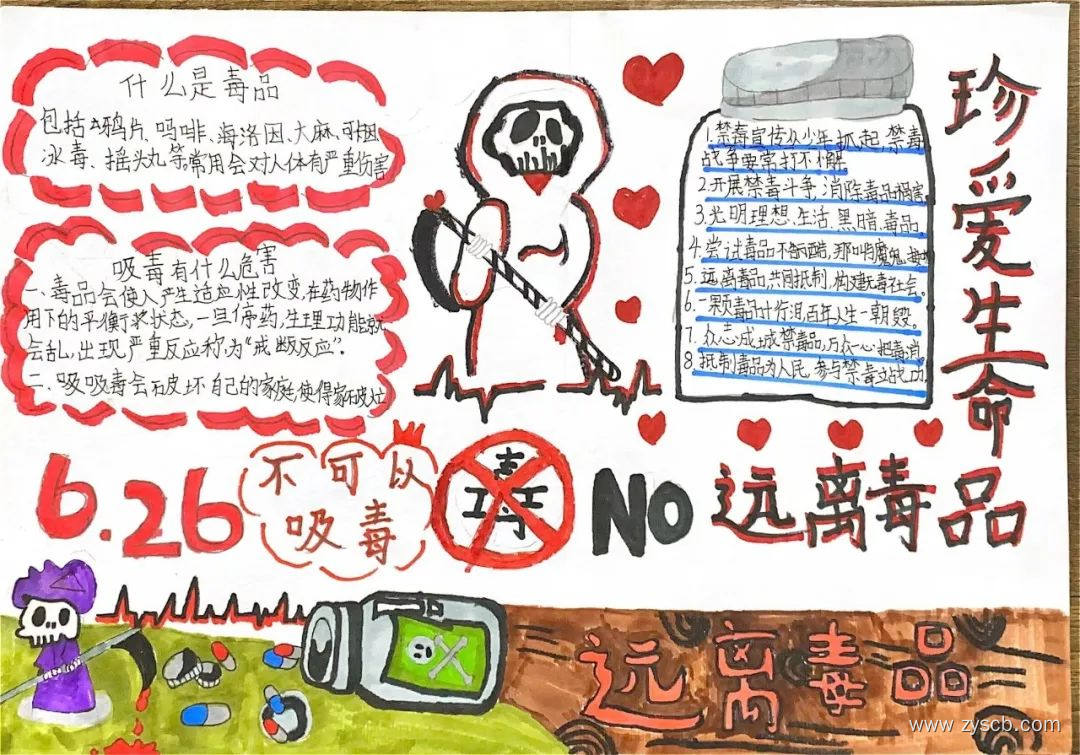 什么是毒品
包括鸦片、吗啡、海洛因、大麻、可卡因
冰毒、摇头丸等。常用会对人体有严重伤害
吸毒有什么危害
一、毒品会使人产生适应性改变,在药物作
用下的平衡状态,一旦停药,生理功能就
会乱,出现严重反应称为“戒断反应”.
二、吸吸毒会破坏自己的家庭,使得家破
1.禁毒宣传从少年抓起,禁毒
战争要常打不懈
2.开展禁毒斗争,消除毒品祸害
3.光明理想、生活、黑暗、毒品。
4.尝试毒品不酷,那叫魔鬼
5.远离毒品,共同抵制,构建无毒社会。
6.一颗毒品泪百年人生一朝毁。
7.众志成城禁毒品,万众一心把毒消
8.抵制毒品为人民,参与禁毒立战功
珍爱生命
6.26
不可以
吸毒
毒
NO
远离毒品
远离毒品
www.zyscb.com